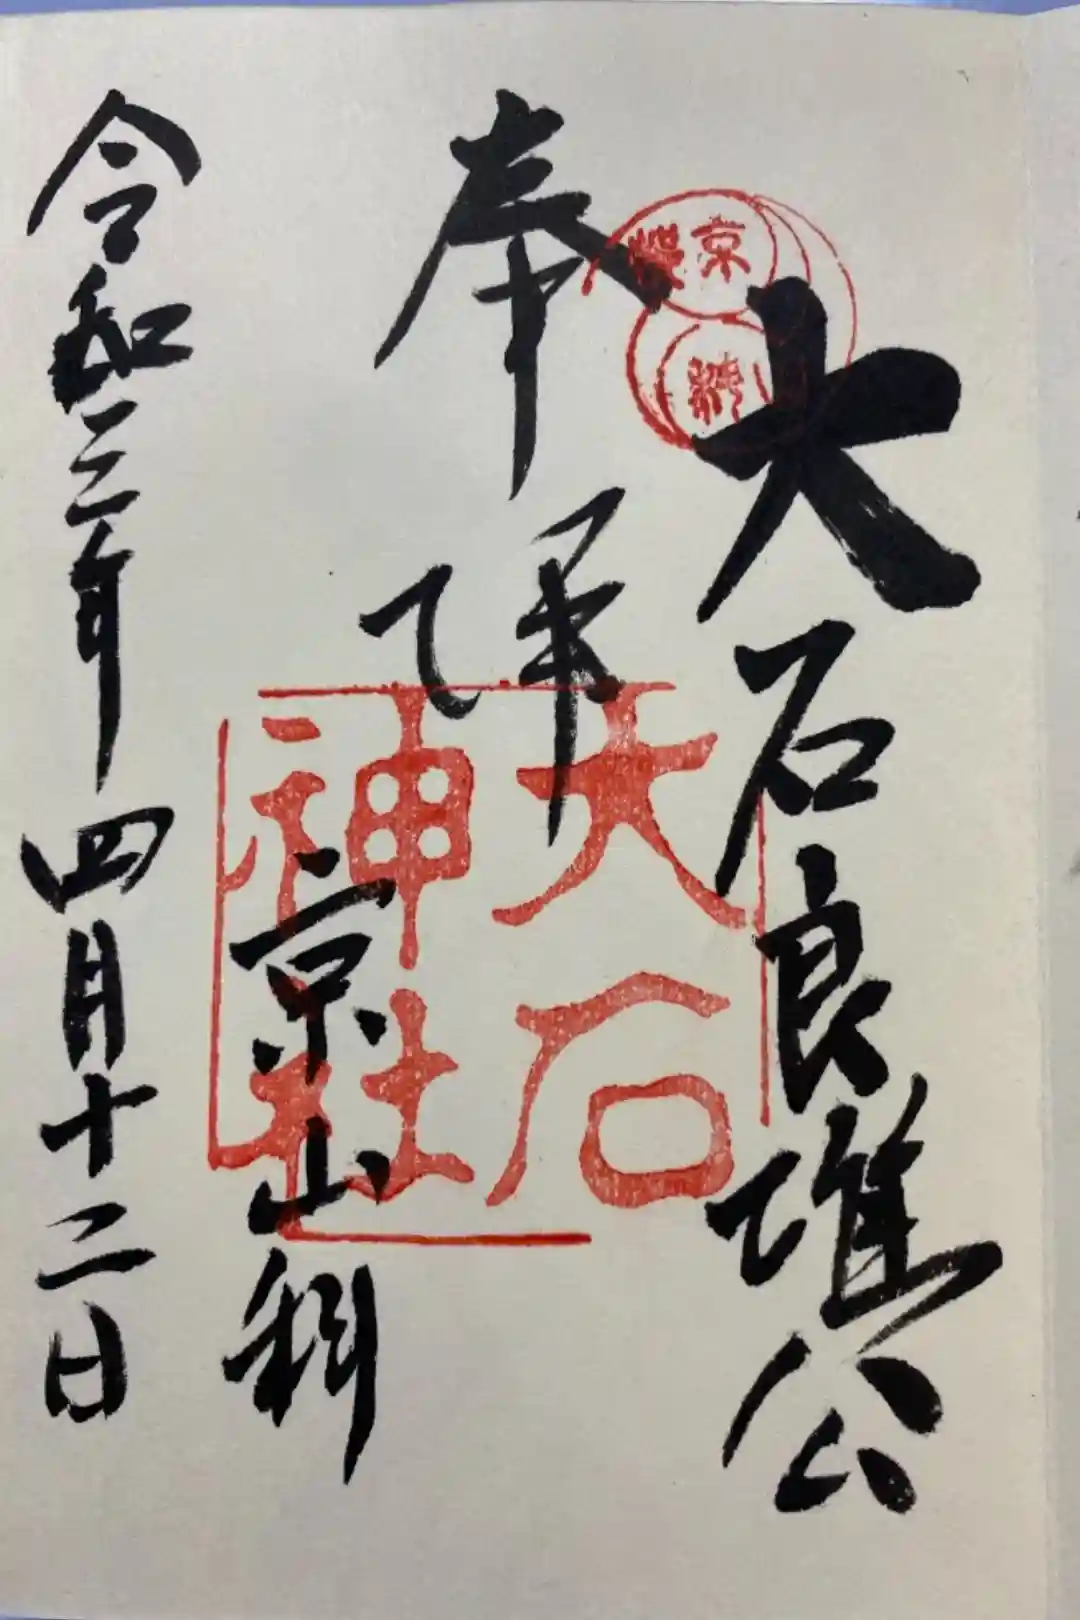 大石良雄公
奉拝
大石
神社
京山科
令和三年四月十二日